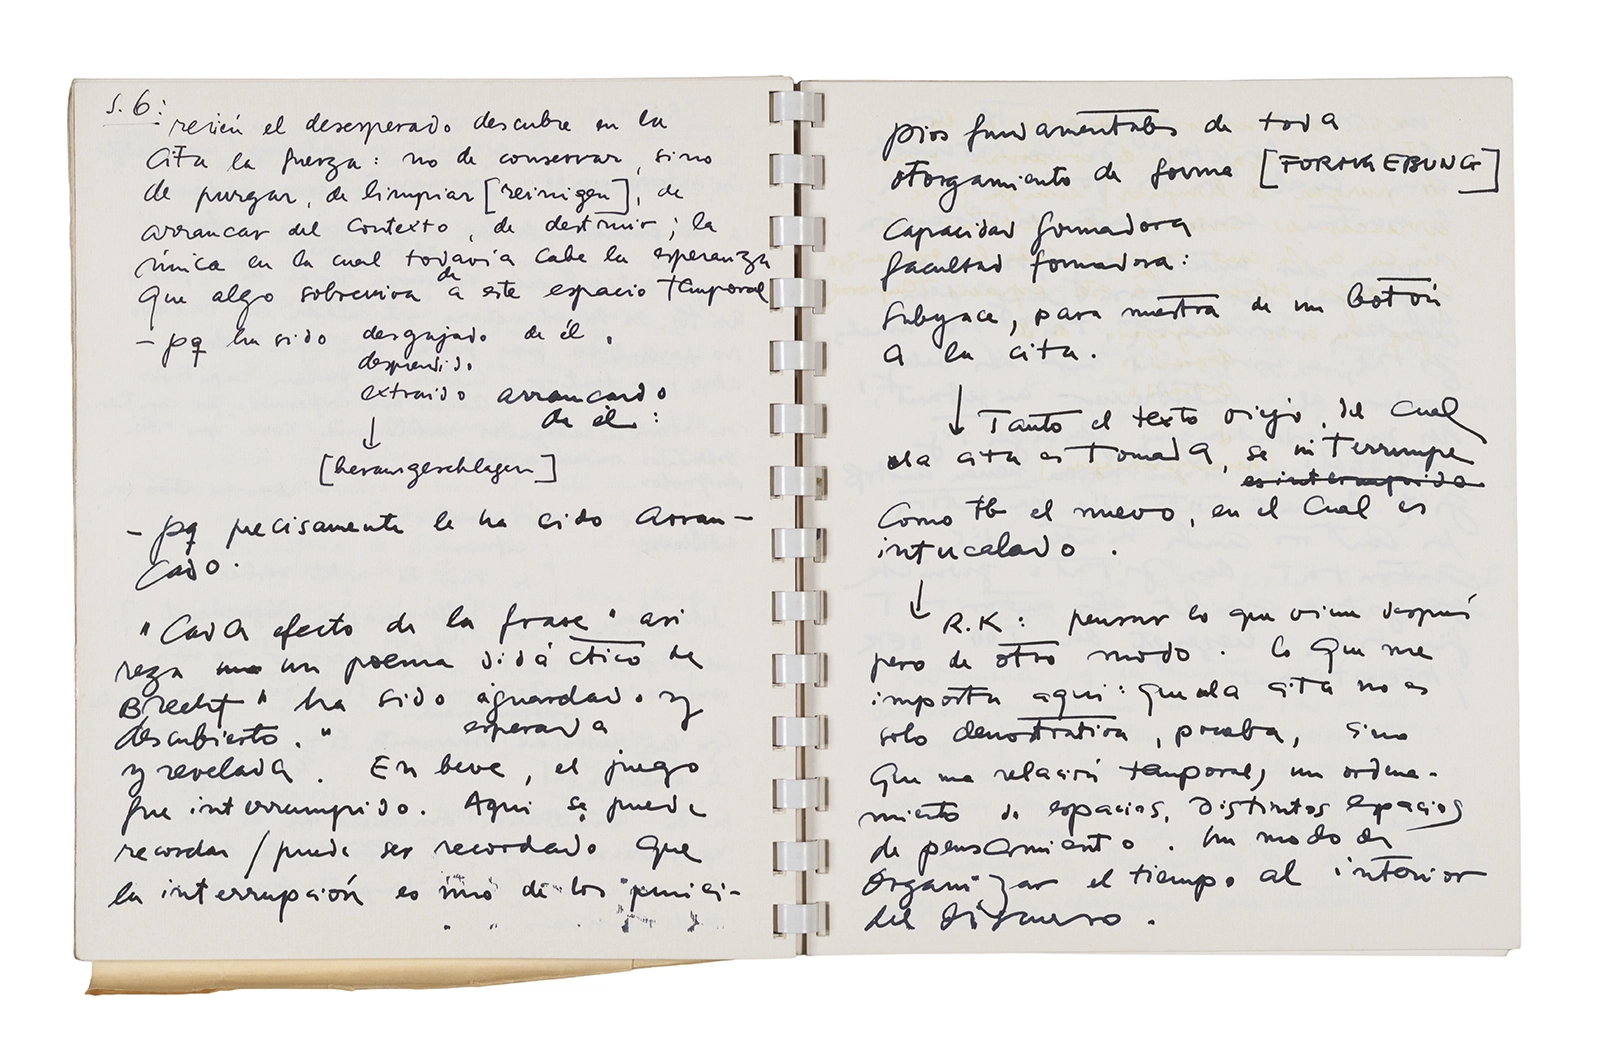 S. 6:
recién el desesperado descubre en la
cita la fuerza: no de conservar, sino
de purgar, de limpiar [reinigen], de
arrancar del contexto, de destruir; la
única en la cual todavía cabe la esperanza
que algo sobreviva de a este espacio temporal
- pq ha sido desgajado de él.
desprendido
extraído arrancado
de él:
↓
[herausgeschlagen]
- pq precisamente le ha sido arran-
cado.
"Cada efecto de la frase" así
reza un poema didáctico de
Brecht "ha sido aguardado y
descubierto." esperada
y revelada. En breve, el juego
fue interrumpido. Aquí se puede
recordar / puede ser recordado que
la interrupción es uno de los princi-
pios fundamentales de toda
otorgamiento de forma [FORMGEBUNG]
Capacidad formadora
facultad formadora:
Subyace, para muestra de un botón
a la cita.
↓ Tanto el texto viejo, del cual
la cita es tomada, se interrumpe
es interrumpido
como tb el nuevo, en el cual es
intercalado.
↓ R.K: pensar lo que viene después
pero de otro modo. Lo que me
importa aquí: que la cita no es
solo demostrativa, prueba, sino
que una relación temporal, un ordena-
miento de espacios, distintos espacios
de pensamiento. Un modo de
organizar el tiempo al interior
del discurso.